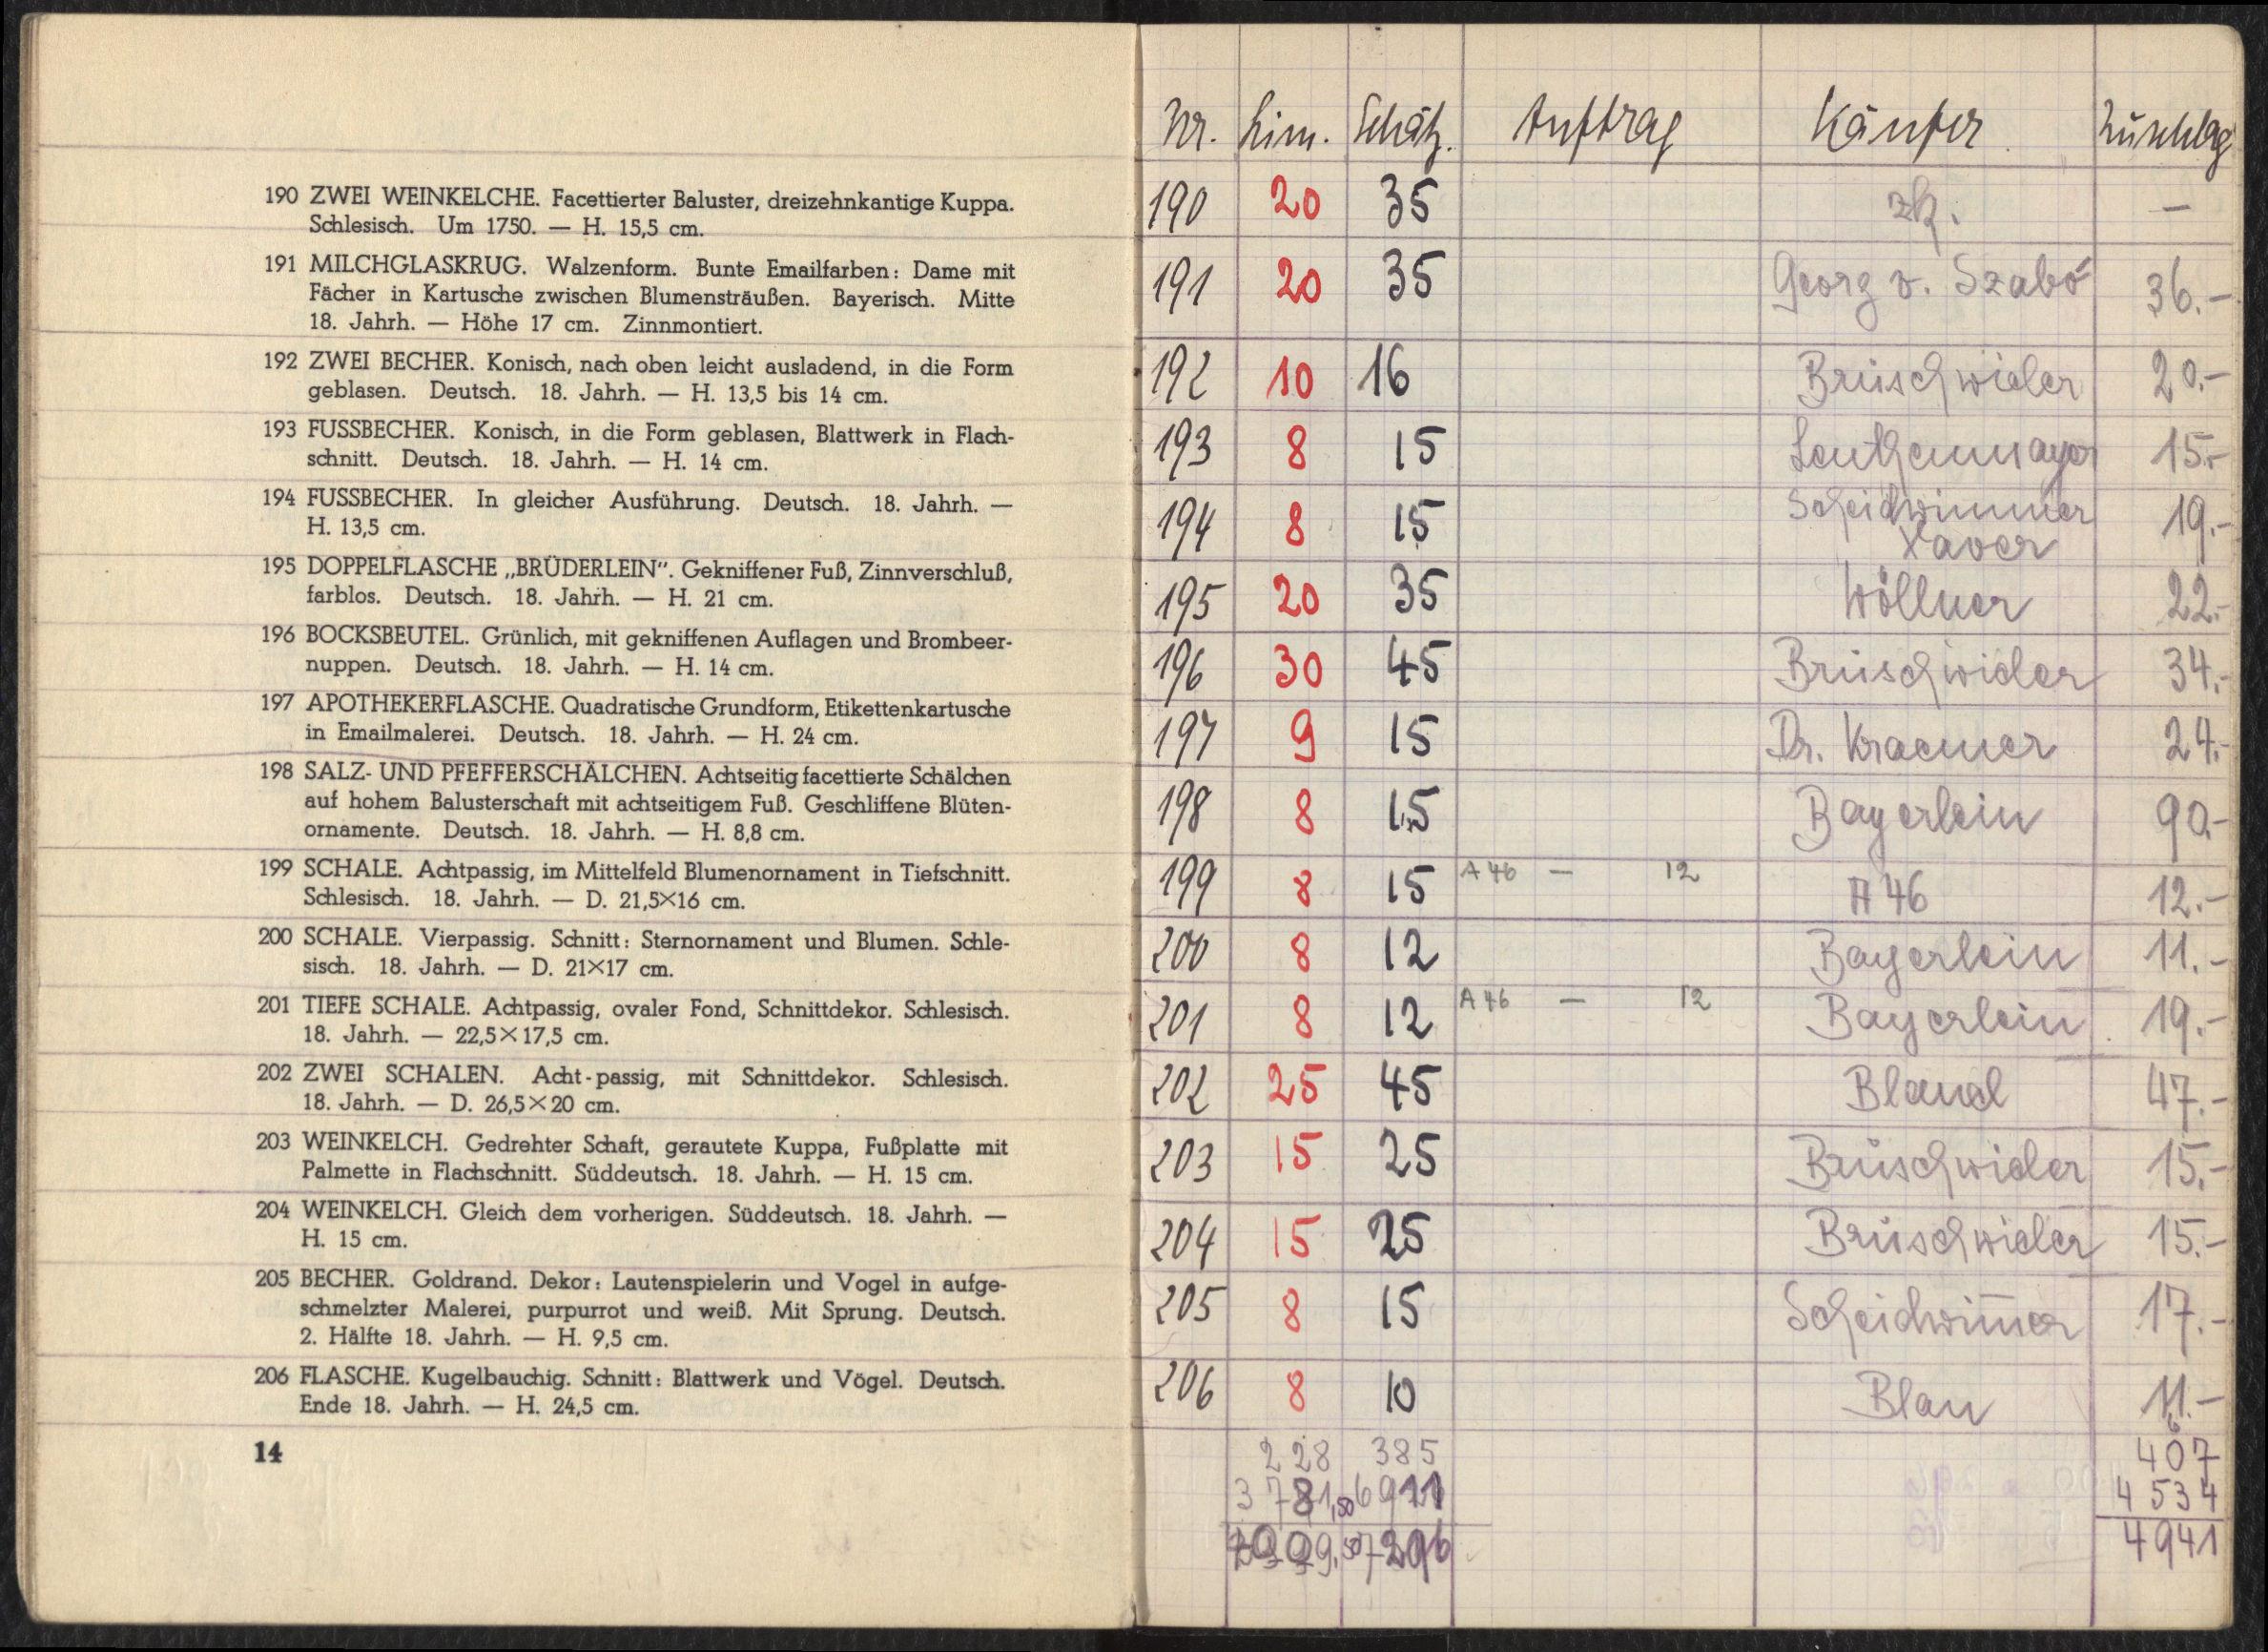 190 ZWEI WEINKELCHE. Facettierter Baluster, dreizehnkantige Kuppa.
Schlesisch. Um 1750. — H. 15,5 cm.
191 MILCHGLASKRUG. Walzenform. Bunte Emailfarben: Dame mit
Fächer in Kartusche zwischen Blumensträußen. Bayerisch. Mitte
18. Jahrh. — Höhe 17 cm. Zinnmontiert.
192 ZWEI BECHER. Konisch, nach oben leicht ausladend, in die Form
geblasen. Deutsch. 18. Jahrh. — H. 13,5 bis 14 cm.
193 FUSSBECHER. Konisch, in die Form geblasen, Blattwerk in Flach-
schnitt. Deutsch. 18. Jahrh. — H. 14 cm.
194 FUSSBECHER. In gleicher Ausführung. Deutsch. 18. Jahrh. —
H. 13,5 cm.
195 DOPPELFLASCHE „BRÜDERLEIN“. Gekniffener Fuß, Zinnverschluß,
farblos. Deutsch. 18. Jahrh. — H. 21 cm.
196 BOCKSBEUTEL. Grünlich, mit gekniffenen Auflagen und Brombeer-
nuppen. Deutsch. 18. Jahrh. — H. 14 cm.
197 APOTHEKERFLASCHE. Quadratische Grundform, Etikettenkartusche
in Emailmalerei. Deutsch. 18. Jahrh. — H. 24 cm.
198 SALZ- UND PFEFFERSCHÄLCHEN. Achtseitig facettierte Schälchen
auf hohem Balusterschaft mit achtseitigem Fuß. Geschliffene Blüten-
ornamente. Deutsch. 18. Jahrh. — H. 8,8 cm.
199 SCHALE. Achtpassig, im Mittelfeld Blumenornament in Tiefschnitt.
Schlesisch. 18. Jahrh. — D. 21,5×16 cm.
200 SCHALE. Vierpassig. Schnitt: Sternornament und Blumen. Schle-
sisch. 18. Jahrh. — D. 21×17 cm.
201 TIEFE SCHALE. Achtpassig, ovaler Fond, Schnittdekor. Schlesisch.
18. Jahrh. — 22,5×17,5 cm.
202 ZWEI SCHALEN. Acht-passig, mit Schnittdekor. Schlesisch.
18. Jahrh. — D. 26,5×20 cm.
203 WEINKELCH. Gedrehter Schaft, gerautete Kuppa, Fußplatte mit
Palmette in Flachschnitt. Süddeutsch. 18. Jahrh. — H. 15 cm.
204 WEINKELCH. Gleich dem vorherigen. Süddeutsch. 18. Jahrh. —
H. 15 cm.
205 BECHER. Goldrand. Dekor: Lautenspielerin und Vogel in aufge-
schmelzter Malerei, purpurrot und weiß. Mit Sprung. Deutsch.
2. Hälfte 18. Jahrh. — H. 9,5 cm.
206 FLASCHE. Kugelbauchig. Schnitt: Blattwerk und Vögel. Deutsch.
Ende 18. Jahrh. — H. 24,5 cm.
14
Nr. Lim. Schätz. Auftrag Käufer Zuschlag
190 20 35 zk. —
191 20 35 Georg v. Szabó 36.–
192 10 16 Brüschwiler 20.–
193 8 15 15.–
194 8 15 Scheidwimmer Xaver 19.–
195 20 35 Wöllner 22.–
196 30 45 Brüschwiler 34.–
197 9 15 Dr. Kraemer 24.–
198 8 15 Bayerlein 90.–
199 8 15 A 46 — 12 A 46 12.–
200 8 12 Bayerlein 11.–
201 8 12 A 46 — 12 Bayerlein 19.–
202 25 45 Blandl 47.–
203 15 25 Brüschwiler 15.–
204 15 25 Brüschwiler 15.–
205 8 15 Scheidwim̄er 17.–
206 8 10 Blau 11.–
228 385 407
3781,50 6911 4534
4009.50 7296 4941